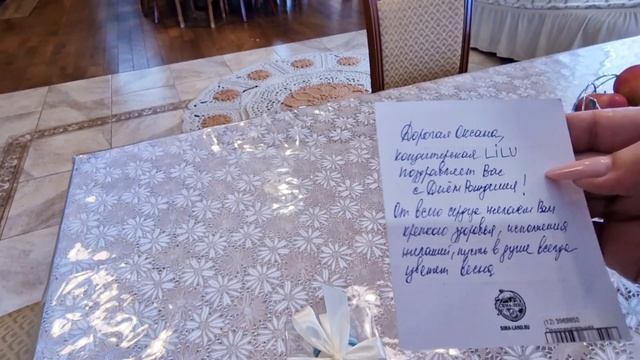 Дорогая Оксана,
кондитерская LiLU
поздравляет Вас
с Днём Рождения!
От всего сердца желаем Вам
крепкого здоровья, исполнения
желаний, пусть в душе всегда
цветет весна
SIMA-LAND.RU